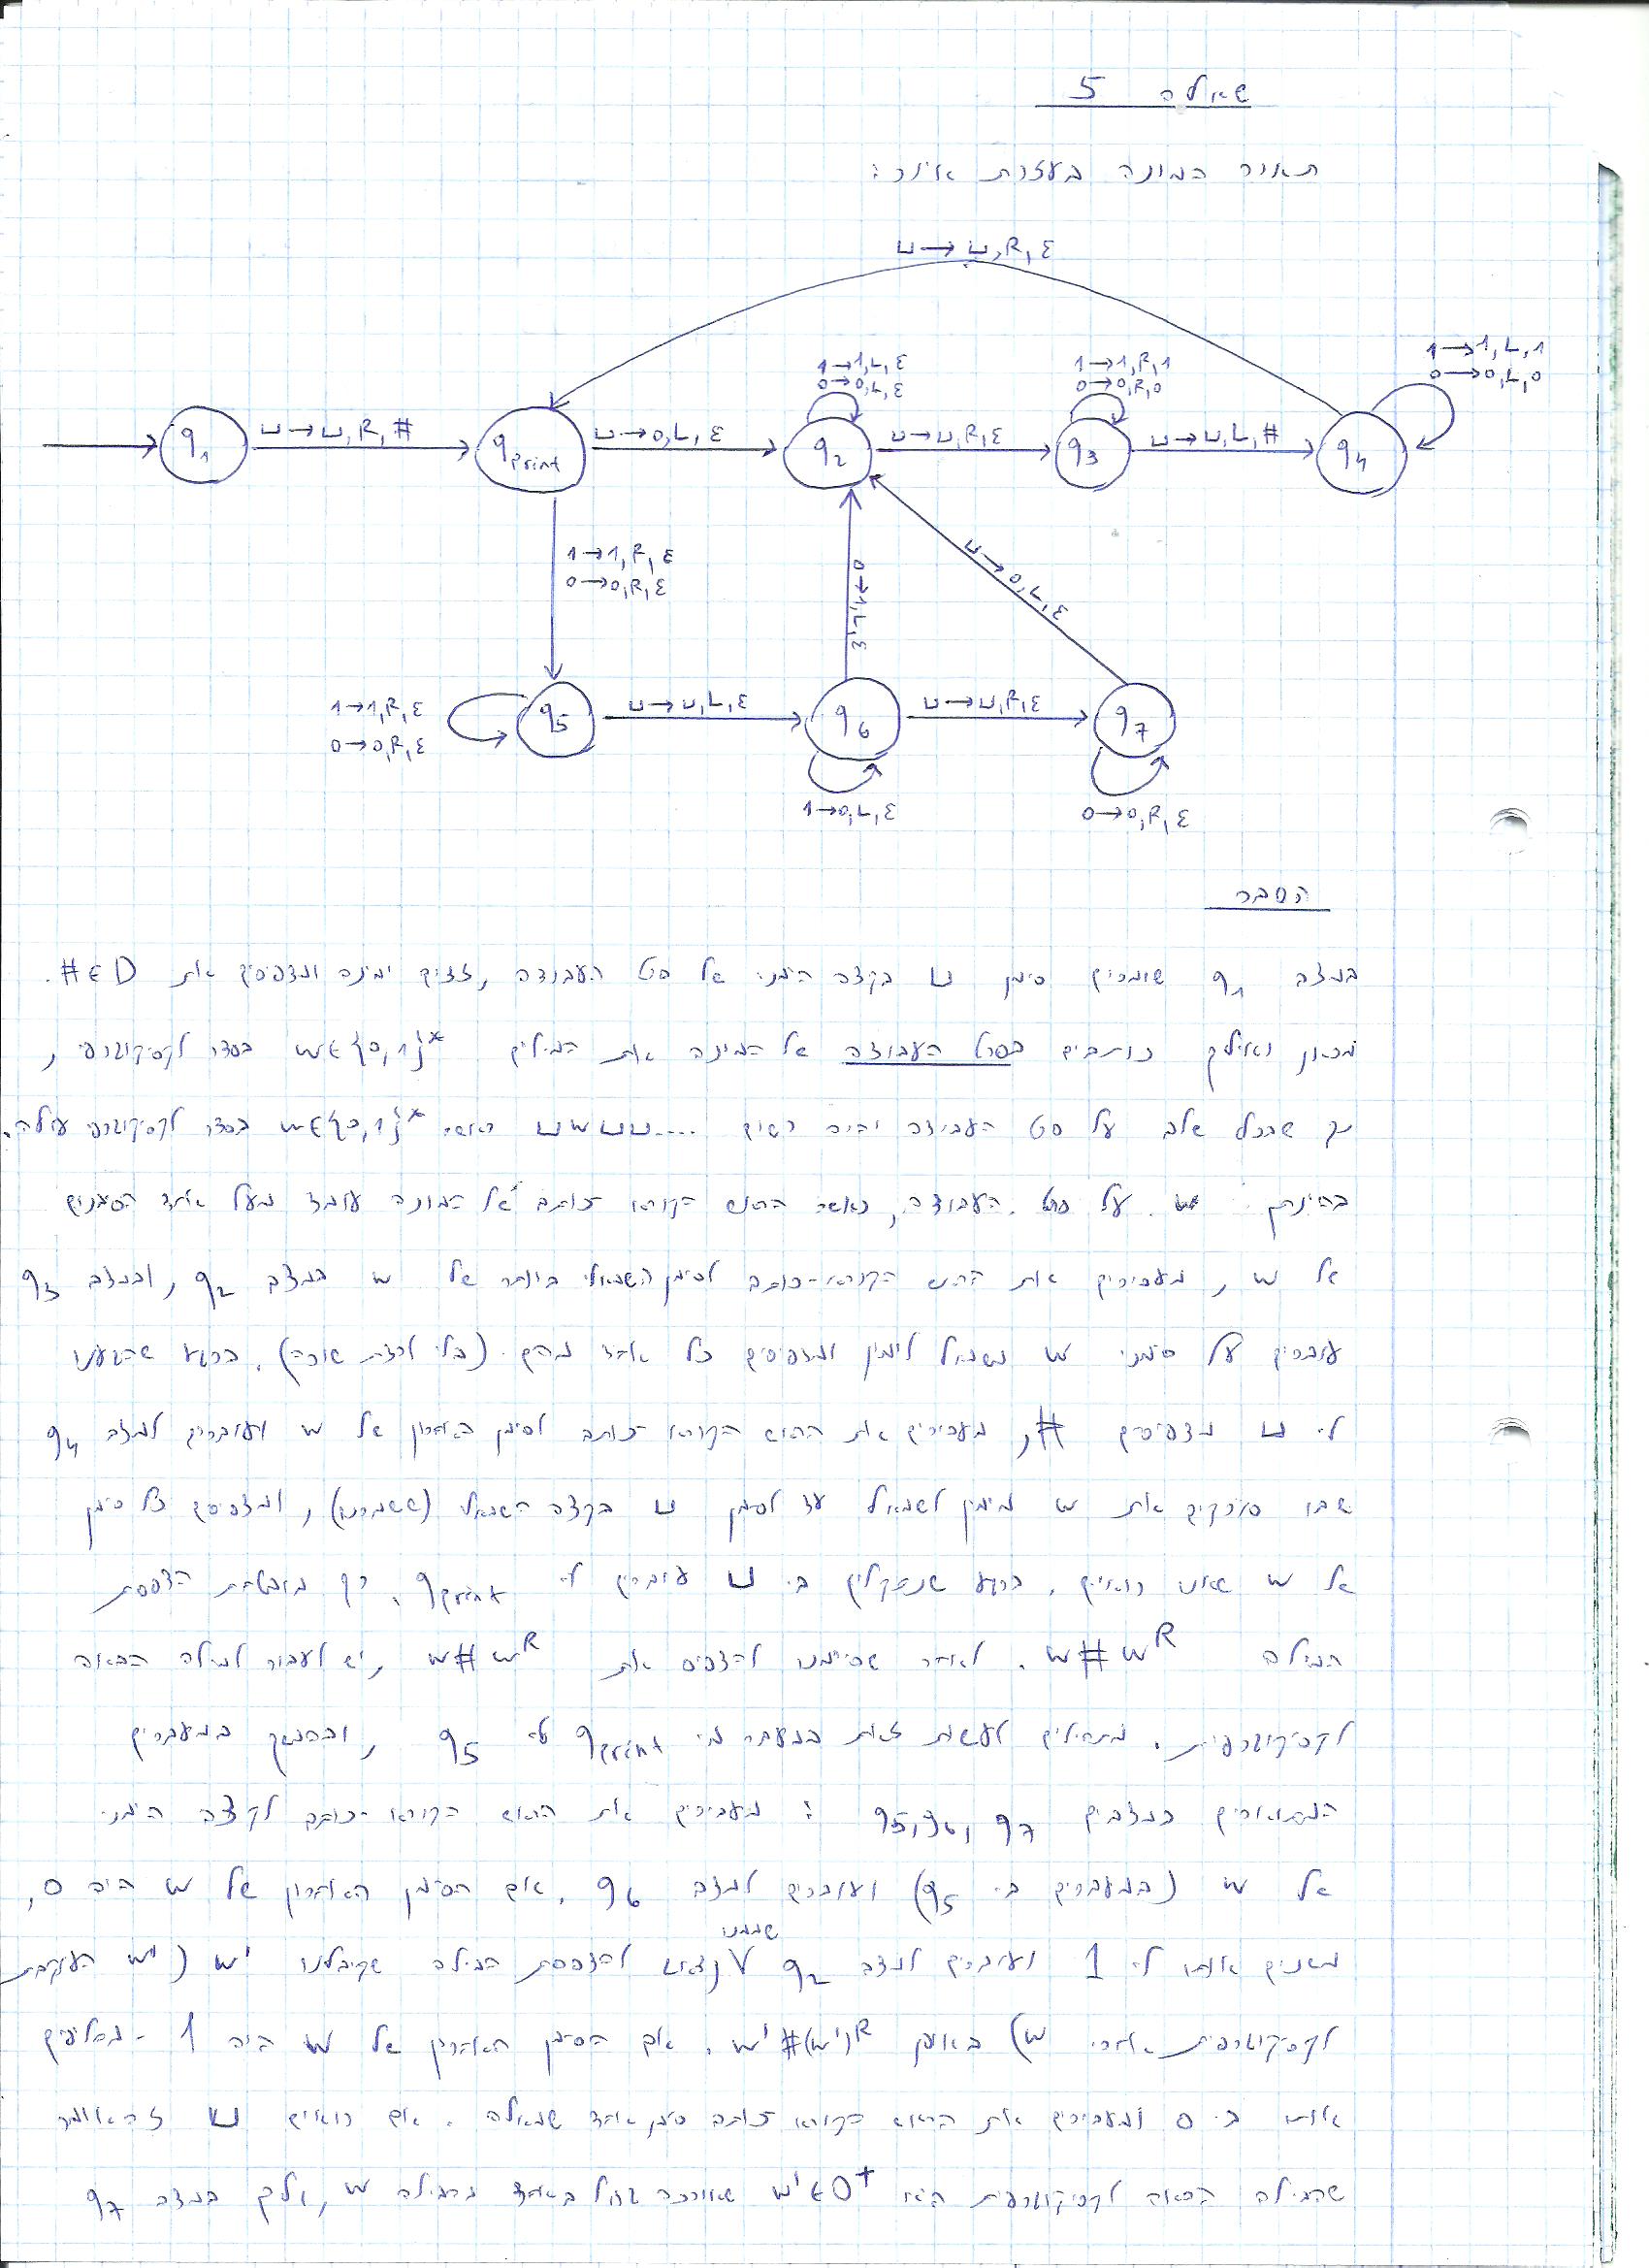 שאלה 5
תאור המכונה בעזרת איור:
⊔→⊔,R,ε
1→1,L,ε
0→0,L,ε
1→1,R,1
0→0,R,0
1→1,L,1
0→0,L,0
q1 ⊔→⊔,R,# qprint ⊔→0,L,ε q2 ⊔→⊔,R,ε q3 ⊔→⊔,L,# q4
1→1,R,ε
0→0,R,ε
0→1,L,ε
⊔→0,L,ε
1→1,R,ε
0→0,R,ε
q5 ⊔→⊔,L,ε q6 ⊔→⊔,R,ε q7
1→0,L,ε
0→0,R,ε
הסבר
במצב q1 שומרים סימן ⊔ בקצה הימני של סרט העבודה, זזים ימינה ומדפיסים את #∈D.
מכאן ואילך כותבים בסרט העבודה של המכונה את המילים w∈{0,1}* בסדר לקסיקוגרפי,
כך שבכל שלב על סרט העבודה יהיה רשום ⊔w⊔⊔.... כאשר w∈{0,1}* בסדר לקסיקוגרפי עולה.
בהינתן w על סרט העבודה, כאשר הראש הקורא כותב של המכונה עומד מעל אחד הסימנים
של w, מעבירים את הראש הקורא-כותב לסימן השמאלי ביותר של w במצב q2, ובמצב q3
עוברים על סימני w משמאל לימין ומדפיסים כל אחד מהם (בלי לרדת שורה). ברגע שהגענו
ל- ⊔ מדפיסים #, מעבירים את הראש הקורא כותב לסימן האחרון של w ועוברים למצב q4
שבו סורקים את w מימין לשמאל עד לסימן ⊔ בקצה השמאלי (ששמרנו), ומדפיסים כל סימן
של w שאנו רואים. ברגע שנתקלים ב- ⊔ עוברים ל- qprint. כך מובטחת הדפסת
המילה w#wR. לאחר שסיימנו להדפיס את w#wR, יש לעבור למילה הבאה
לקסיקוגרפית. מתחילים לעשות זאת במעבר מ- qprint ל- q5, ובהמשך במעברים
המתוארים במצבים q5,q6,q7: מעבירים את הראש הקורא-כותב לקצה הימני
של w (במעברים ב- q5) ועוברים למצב q6. אם הסימן האחרון של w היה 0,
משנים אותו ל- 1 ועוברים למצב q2 שממנו נצא להדפסת המילה שקיבלנו w' (w' העוקבת
לקסיקוגרפית אחרי w) באופן w'#(w')R. אם הסימן האחרון של w היה 1 - מחליפים
אותו ב- 0 ומעבירים את הראש הקורא כותב סימן אחד שמאלה. אם רואים ⊔ זה אומר
שהמילה הבאה לקסיקוגרפית היא w'∈0+ שאורכה גדול באחד מהמילה w, ולכן במצב q7